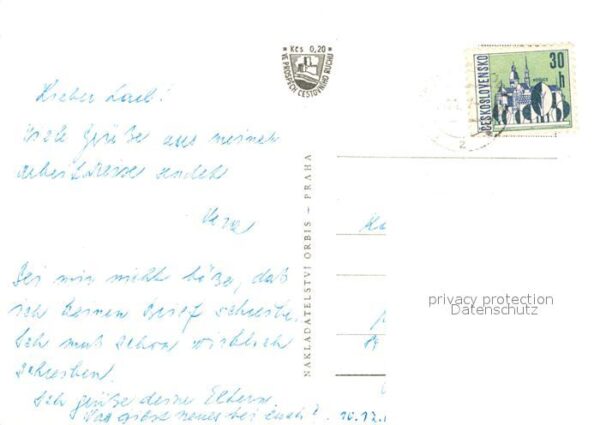 Kčs 0,20
VE PROSPĚCH CESTOVNÍHO RUCHU
ČESKOSLOVENSKO
30
h
Lieber
Viele Grüße aus meiner
sendet
Vera
NAKLADATELSTVÍ ORBIS – PRAHA
Sei mir nicht böse, daß
ich keinen Brief schreibe.
Ich muß schon wirklich
schreiben.
Ich grüße deine Eltern.
Was gibst neues bei Euch?
privacy protection
Datenschutz